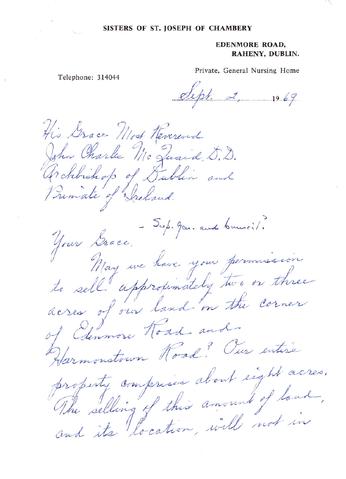 SISTERS OF ST. JOSEPH OF CHAMBERY
EDENMORE ROAD,
RAHENY, DUBLIN.
Private, General Nursing Home
Telephone: 314044
Sept. 2, 1969
His Grace Most Reverend
John Charles McQuaid, D.D.
Archbishop of Dublin and
Primate of Ireland.
- Sup. Gen. and Council?
Your Grace,
May we have your permission
to sell approximately two or three
acres of our land on the corner
of Edenmore Road and
Harmonstown Road? Our entire
property comprises about eight acres.
The selling of this amount of land,
and its location, will not in